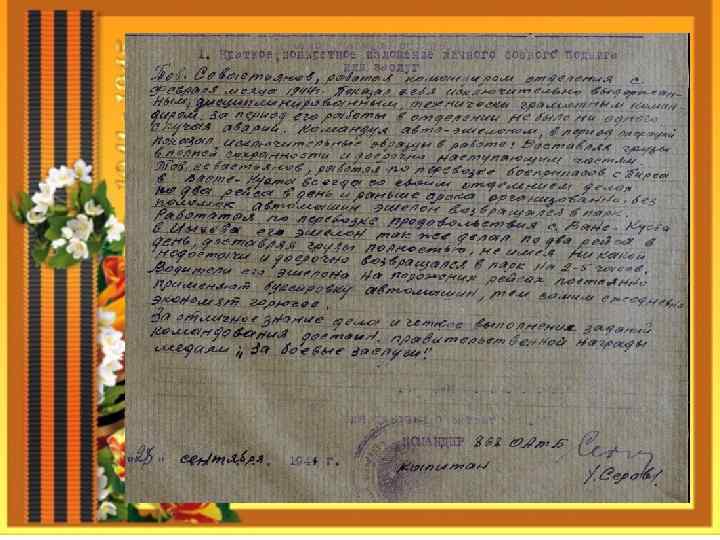 1941-1945
1. Краткое, конкретное изложение личного боевого подвига
или заслуг
Тов. Савостьянов, работая командиром отделения с
февраля месяца 1944г. показал себя исключительно выдержан-
ным, дисциплинированным, технически грамотным коман-
диром. За период его работы в отделении не было ни одного
случая аварий. Командуя авто-эшелоном, в период операций
показал исключительные образцы в работе: Доставляя грузы
в полной сохранности и досрочно наступающим частям
Тов. Савостьянов, работая по перевозке боеприпасов с
в всегда со своим отделением делал
по два рейса в день и раньше срока организованно, без
поломок автомашин эшелон возвращался в парк.
Работая по перевозке продовольствия с.
в его эшелон так же делал по два рейса в
день, доставляя грузы полностью, не имея никакой
недостачи и досрочно возвращался в парк на 2-5 часов.
Водители его эшелона на порожних рейсах постоянно
применяют буксировку автомашин, тем самым ежедневно
экономят горючее.
За отличное знание дела и четкое выполнение заданий
командования достоин правительственной награды
медали „За боевые заслуги"
КОМАНДИР 868 ОАтБ
„28" сентября 1944 г.
капитан